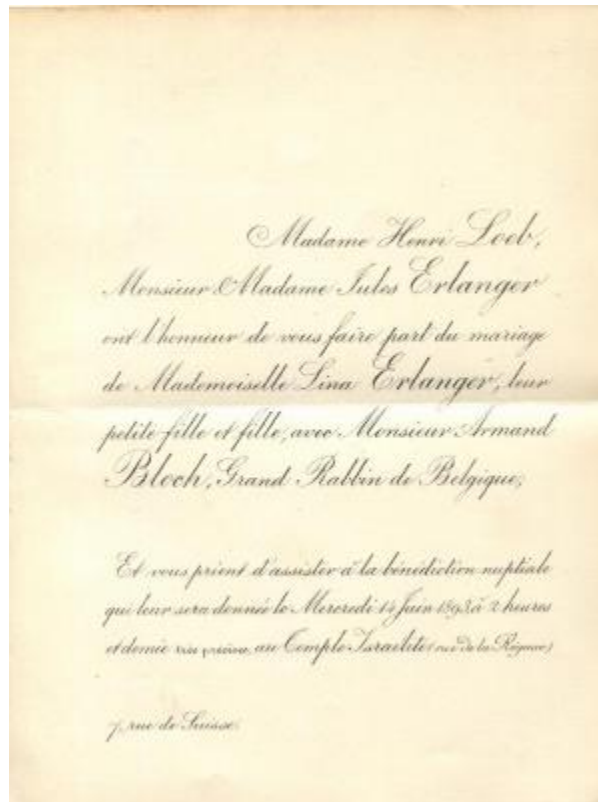 Madame Henri Loeb,
Monsieur & Madame Jules Erlanger
ont l'honneur de vous faire part du mariage
de Mademoiselle Lina Erlanger, leur
petite-fille et fille, avec Monsieur Armand
Bloch, Grand Rabbin de Belgique,
Et vous prient d'assister à la bénédiction nuptiale
qui leur sera donnée le Mercredi 14 Juin 1893, à 2 heures
et demie très précises, au Temple Israélite (rue de la Régence)
7, rue de Suisse.